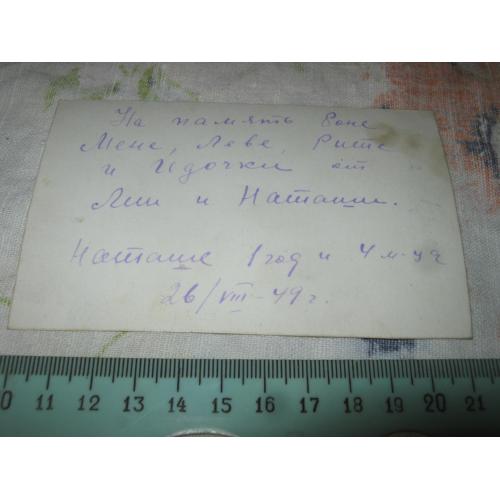 На память Боне
Мене, Леве, Рите
и Идочки от
Лии и Наташи.
Наташе 1 год и 4 м-ца
26/VIII-49 г.
10 11 12 13 14 15 16 17 18 19 20 21